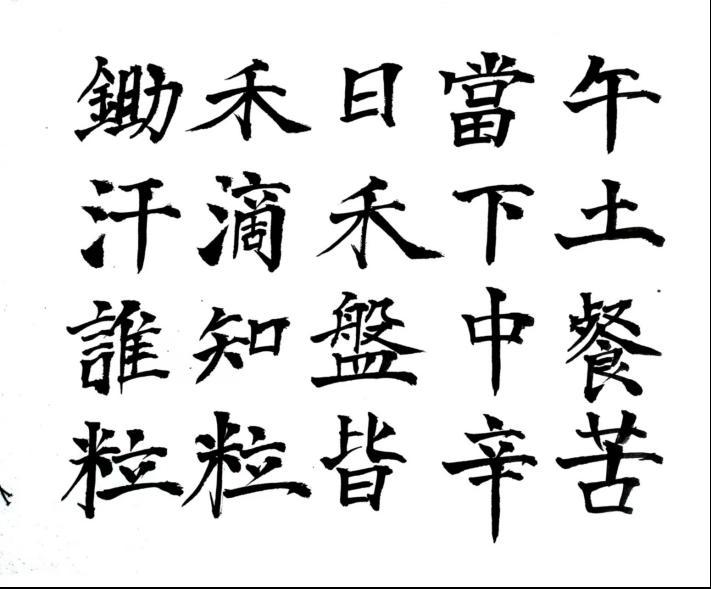 鋤禾日當午
汗滴禾下土
誰知盤中餐
粒粒皆辛苦